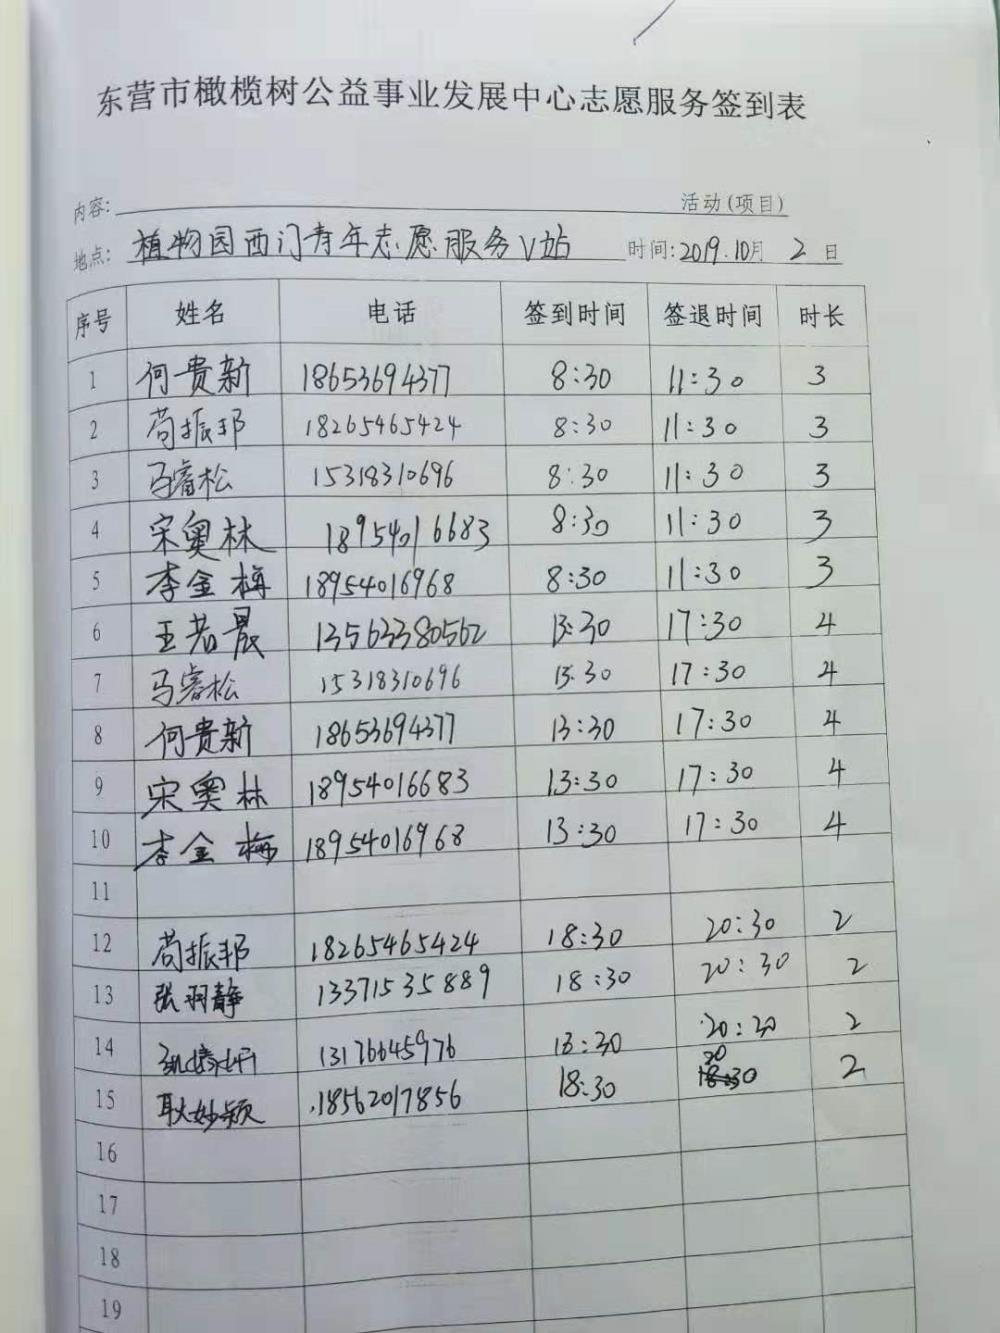 东营市橄榄树公益事业发展中心志愿服务签到表
内容: 活动(项目)
地点: 植物园西门青年志愿服务V站 时间:2019.10月 2 日
序号 姓名 电话 签到时间 签退时间 时长
1 何贵新 18653694377 8:30 11:30 3
2 苟振邦 18265465424 8:30 11:30 3
3 马睿松 15318310696 8:30 11:30 3
4 宋奥林 18954016683 8:30 11:30 3
5 李金梅 18954016968 8:30 11:30 3
6 王若晨 13563380562 13:30 17:30 4
7 马睿松 15318310696 13:30 17:30 4
8 何贵新 18653694377 13:30 17:30 4
9 宋奥林 18954016683 13:30 17:30 4
10 李金梅 18954016968 13:30 17:30 4
11
12 苟振邦 18265465424 18:30 20:30 2
13 张羽静 13371535889 18:30 20:30 2
14 13176645976 18:30 20:30 2
15 耿妙颖 18562017856 18:30 20:30 2
16
17
18
19